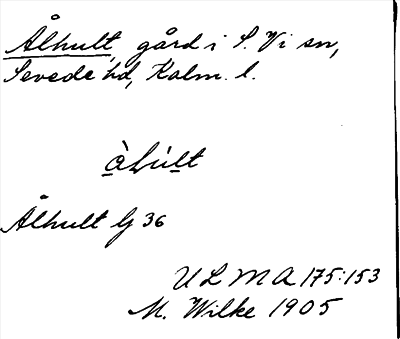 Ålhult, gård i S. Vi sn,
Sevede hd, Kalm. l.
Ålhult G 36
ULMA 175:153
M. Wilke 1905